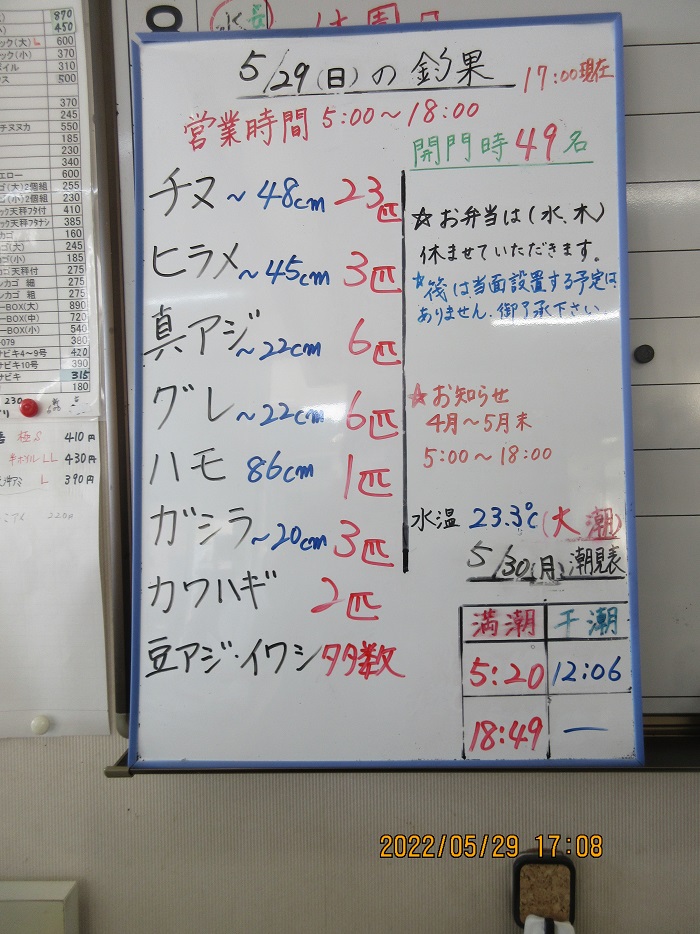 870
450
ック(大) L 600
ック(小) 370
パイル 310
500
370
245
チヌヌカ 550
185
230
340
エロー 600
ゴ(大)2個組 255
(小)2個組 230
ック天秤フタ付 410
ック天秤フタナシ 385
カゴ 160
ゴ(大) 245
ゴ(小) 185
カゴ天秤付 275
ンカゴ 細 275
ンカゴ 粗 275
ーBOX(大) 890
ーBOX(中) 720
ーBOX(小) 540
-079 380
サビキ4～9号 420
サビキ10号 390
サビキ 315
180
230
極 S 410円
LL 430円
L 390円
5/29(日)の釣果 17:00現在
営業時間 5:00～18:00
開門時 49名
チヌ ～48cm 23匹
ヒラメ ～45cm 3匹
真アジ ～22cm 6匹
グレ ～22cm 6匹
ハモ 86cm 1匹
ガシラ ～20cm 3匹
カワハギ 2匹
豆アジ・イワシ 多数
☆お弁当は(水、木)
休ませていただきます。
☆筏は当面設置する予定は
ありません。御了承下さい
☆お知らせ
4月～5月末
5:00～18:00
水温 23.3℃(大潮)
5/30(月)潮見表
満潮 干潮
5:20 12:06
18:49 ―
2022/05/29 17:08